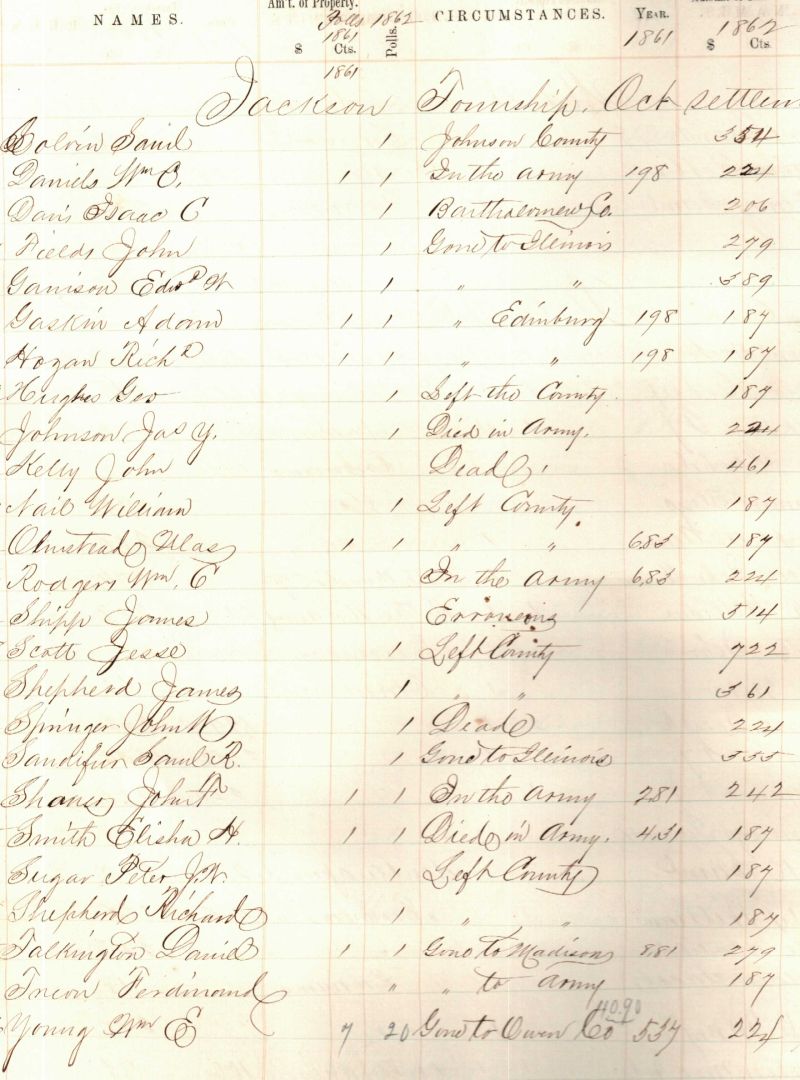 NAMES. Am't. of Property. Polls 1862 CIRCUMSTANCES. YEAR.
1861 1861 1862
$ Cts. Polls. $ Cts.
1861
Jackson Township. Oct settlem
Colvin Saml 1 Johnson County 354
Daniels Wm O. 1 1 In the army 198 224
Davis Isaac C 1 Bartholomew Co. 206
Fields John 1 Gone to Illinois 279
Garrison Edwd W 1 " " 389
Gaskin Adam 1 1 " Edinburg 198 187
Hogan Richd 1 1 " " 198 187
Hughes Geo 1 Left the County. 187
Johnson Jas Y. 1 Died in Army. 224
Kelly John Dead. 461
Nail William 1 Left County 187
Olmstead Silas 1 1 " " 6,83 187
Rodgers Wm. C In the Army 6,83 224
Shipp James Erroneous 514
Scott Jesse 1 Left County 722
Shepherd James 1 " " 361
Springer John W 1 Dead 224
Sandifur Saml R. 1 Gone to Illinois 355
Shaner John 1 1 In the Army 281 242
Smith Elisha H. 1 1 Died in Army. 4,31 187
Sugar Peter J.W. 1 Left County 187
Shepherd Richard 1 " " 187
Talkington Daniel 1 1 Gone to Madison 8,81 279
Treon Ferdinand " " to Army 187
40.90
Young Wm E 7 20 Gone to Owen Co 537 224